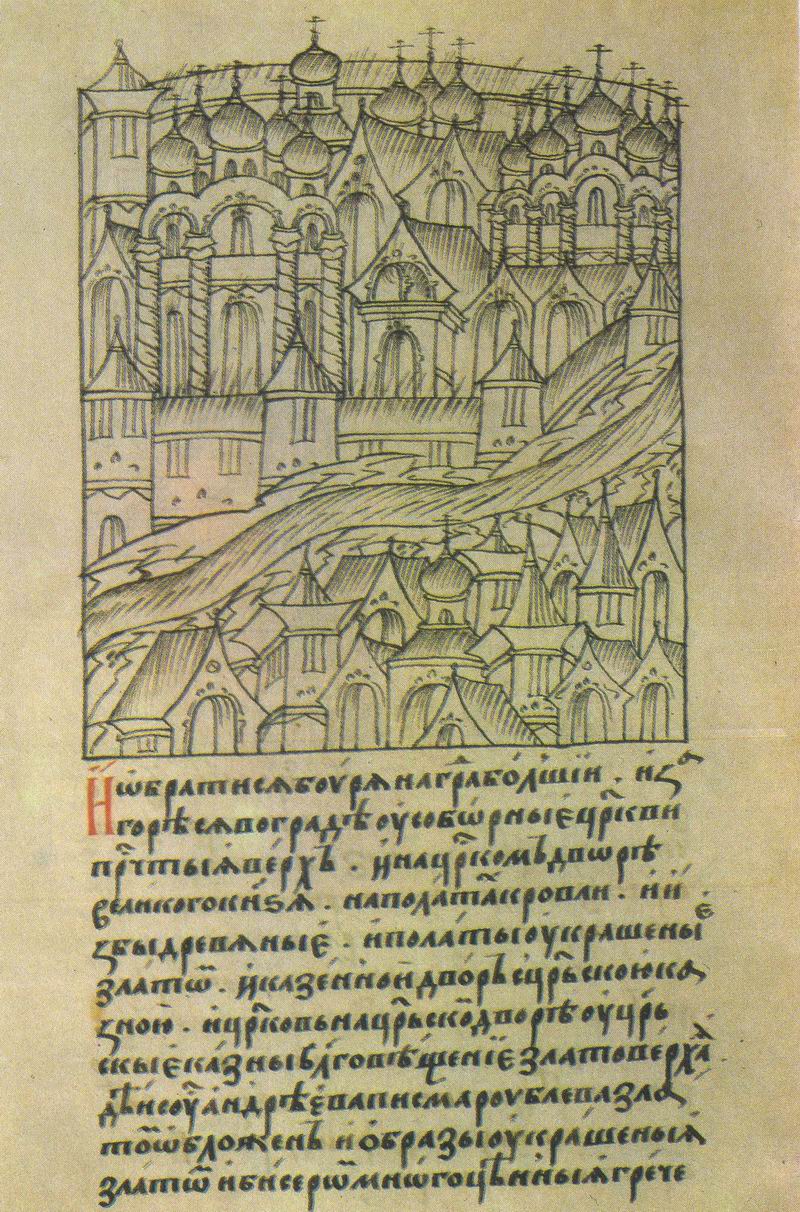 И ѡбратисѧ боурѧ на граⷣ болшїи . и за
горѣсѧ во градѣ оу собѡрные цр҃кви
пр҃чтыѧ верхъ . и на цр҃комъ двѡрѣ
великого кн҃ѕѧ . на полатаⷯ кровли . и и
збы древѧные . и полаты оукрашеныⷷ
златѡⷨ . и казенной дворъ съ цр҃ьскою ка
зною . и цр҃ковь на цр҃ьскоⷨ дворѣ оу цр҃ь
скые казны бл҃говѣщенїе златоверхаⷽ
дѣисоуⷭ андрѣева писма роублева зла
тоⷨ ѡбложенъ и ѡбразы оукрашеныѧ
златѡⷨ и бисерѡⷨ мнѡгоцѣнныѧ грече